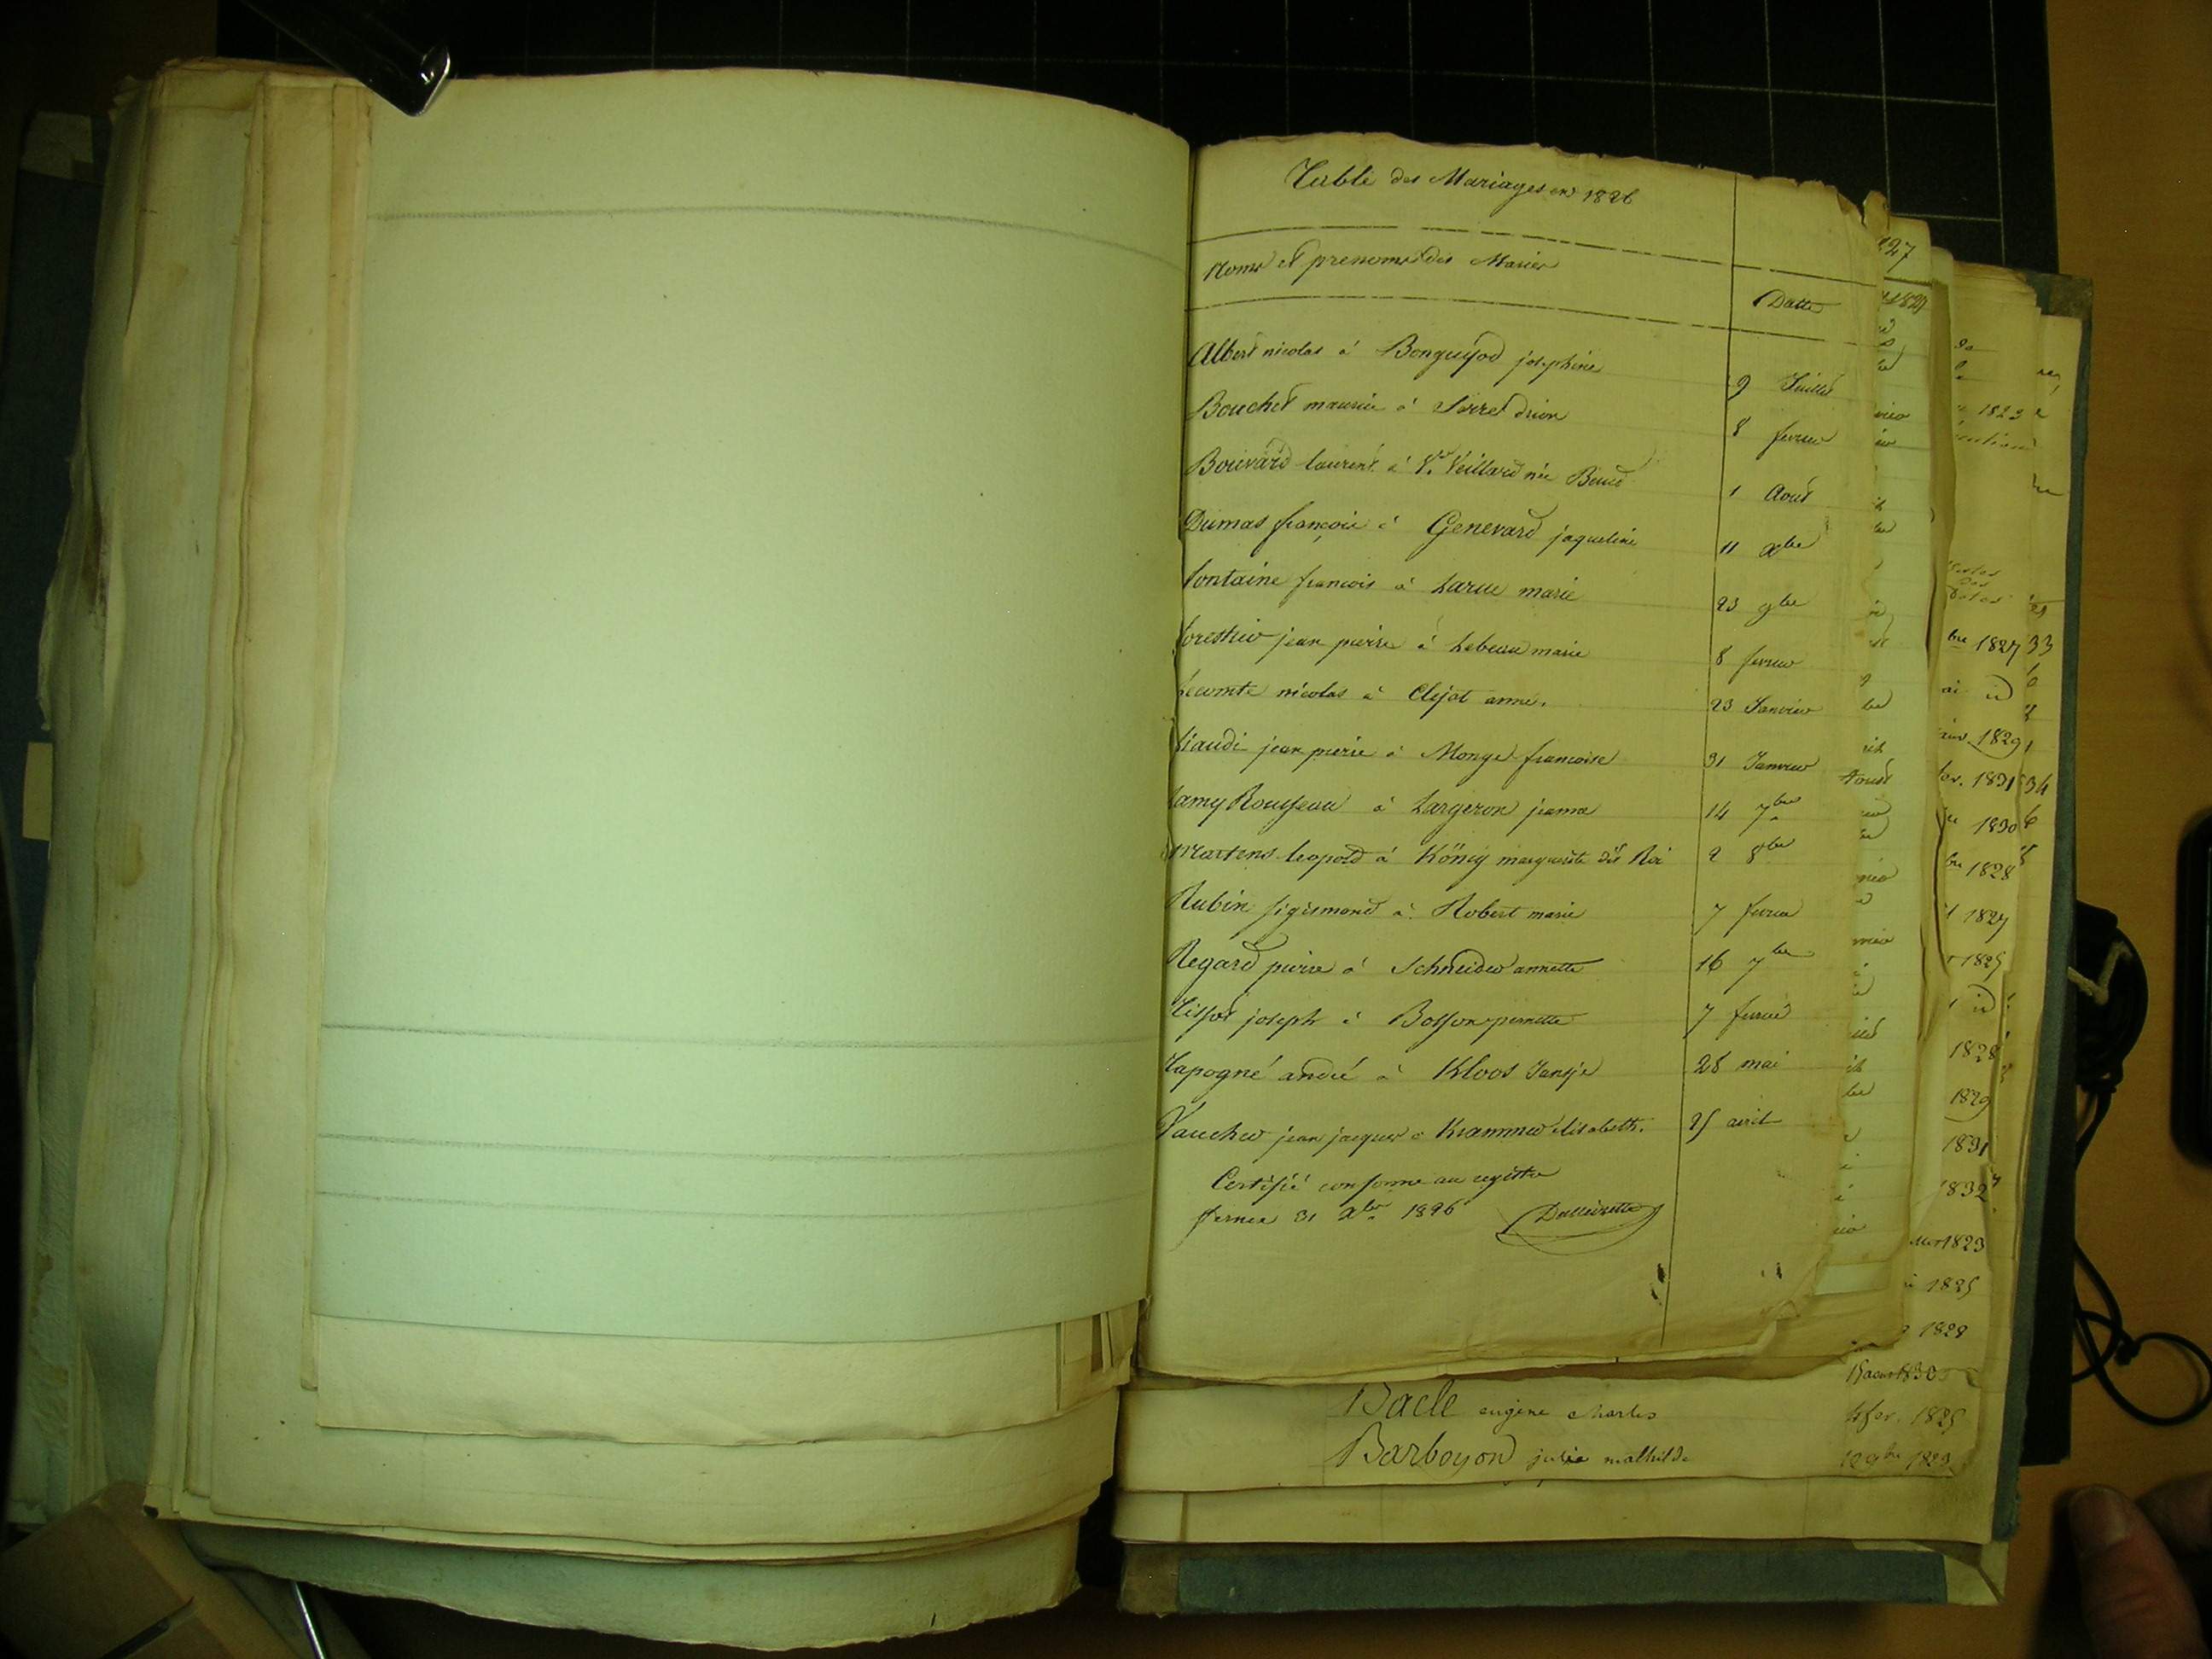 Table des Mariages en 1826
Noms et prenoms des Mariés
Datte
Albert nicolas à Bonguyod josephine 9 Juillet
Bouchet maurice à Serret 8 fevrier
Bouvard laurent à Vve Veillard née Baud 1 Aout
Dumas françois à Genevard jaqueline 11 xbre
fontaine francois à Larue marie 23 9bre
forestier jean pierre à Lebeau marie 8 fevrier
Lecomte nicolas à Clejat anne. 23 Janvier
Liaudi jean pierre à Monge francoise 31 Janvier
Lamy Rousseau à Largeron jeanne 14 7bre
Martens leopold à König marguerite dit Roi 2 8bre
Rubin sigismond à Robert marie 7 fevrier
Regard pierre à Schneider annette 16 7bre
Tissot joseph à Bosson pernette 7 fevrier
Tapogné andré à Kloos Jansje 28 mai
Vaucher jean jacques à Krammer elisabeth. 25 avril
Certifié conforme au registre
fernex 31 xbre 1826
Bacle eugene charles 4 fev. 1825
Barboyon julie mathilde 10 9bre 1823